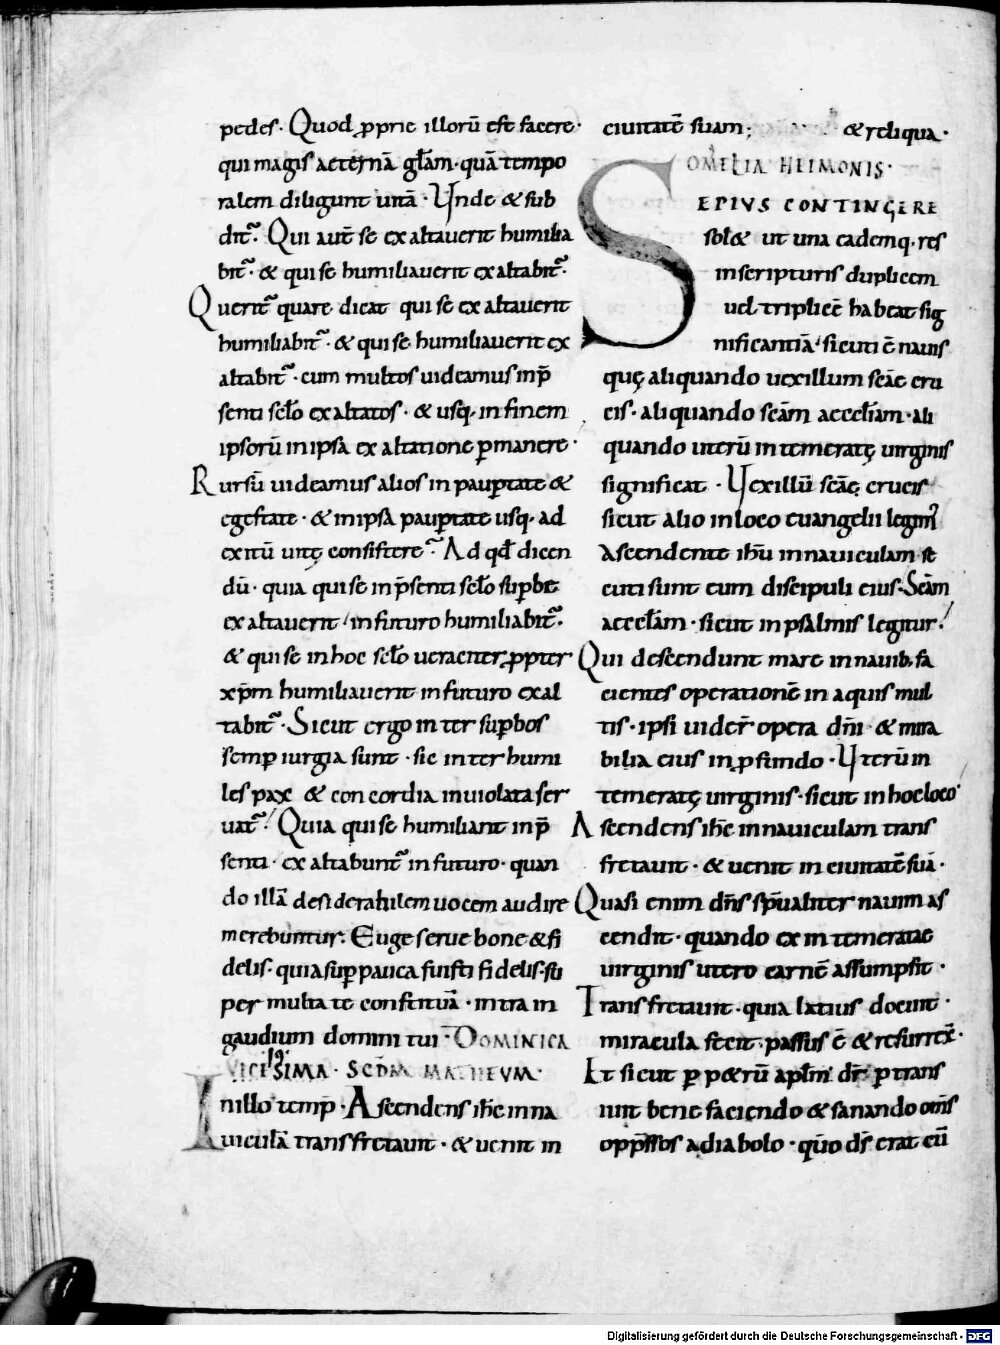 pedes. Quod ꝓprie illorū est facere.
qui magis aeternā gl̄am. quā tempo
ralem diligunt uitā. Unde & sub
dit᷑. Qui aut̄ se exaltauerit humilia
bit᷑. & qui se humiliauerit exaltabit᷑.
Querit᷑ quare dicat qui se exaltauerit
humiliabit᷑. & qui se humiliauerit ex
altabit᷑. cum multos uideamus inp̄
senti scl̄o exaltatos. & usq, in finem
ipsorū in ipsa exaltatione ꝑmanere.
Rursū uideamus alios in pauꝑtate &
egestate. & in ipsa pauꝑtate usq, ad
exitū uitę consistere. Ad qd̄ dicen
dū. quia qui se in p̄senti scl̄o suꝑbe
exaltauerit in futuro humiliabit᷑.
& qui se in hoc scl̄o ueraciter ꝓpter
xp̄m humiliauerit in futuro exal
tabit᷑. Sicut ergo inter suꝑbos
semꝑ iurgia sunt. sic inter humi
les pax & concordia inuiolata ser
uat᷑. Quia qui se humiliant in p̄
senti. exaltabunt᷑ in futuro. quan
do illā desiderabilem uocem audire
merebuntur. Euge serue bone & fi
delis. quia suꝑ pauca fuisti fidelis. su
per multa te constituā. intra in
gaudium domini tui. DOMINICA
VICISIMA. SCDM MATHEVM.
In illo temp̄. Ascendens ih̄c inna
uiculā transfretauit. & uenit in
ciuitatē suam; & reliqua.
OMELIA HEIMONIS.
SEPIVS CONTINGERE
sol& ut una eademq, res
in scripturis duplicem
uel triplicē habeat sig
nificantiā. sicuti ē nauis
quę aliquando uexillum scāe cru
cis. aliquando scām aeccl̄iam. ali
quando uterū intemeratę uirginis
significat. Uexillū scāę crucis
sicut alio in loco euangelii legim᷒
Ascendente ih̄u in nauiculam se
cuti sunt eum discipuli eius. Scām
aeccl̄iam. sicut in psalmis legitur.
Qui descendunt mare in nauib, fa
cientes operationē in aquis mul
tis. ipsi uider̄ opera dn̄i & mira
bilia eius in ꝓfundo. Uterū in
temeratę uirginis. sicut in hoc loco.
Ascendens ih̄c in nauiculam trans
fretauit. & uenit in ciuitatē suā.
Quasi enim dn̄s sp̄ualiter nauim as
cendit. quando ex intemeratae
uirginis utero carnē assumpsit.
Transfretauit. quia latius docuit.
miracula fecit. passus ē & resurrex̄.
Et sicut ꝑ p&rū ap̄lm dr̄ ꝑtrans
iuit bene faciendo & sanando om̄s
opp̄ssos a diabolo. qūo ds̄ erat cū
Digitalisierung gefördert durch die Deutsche Forschungsgemeinschaft - DFG